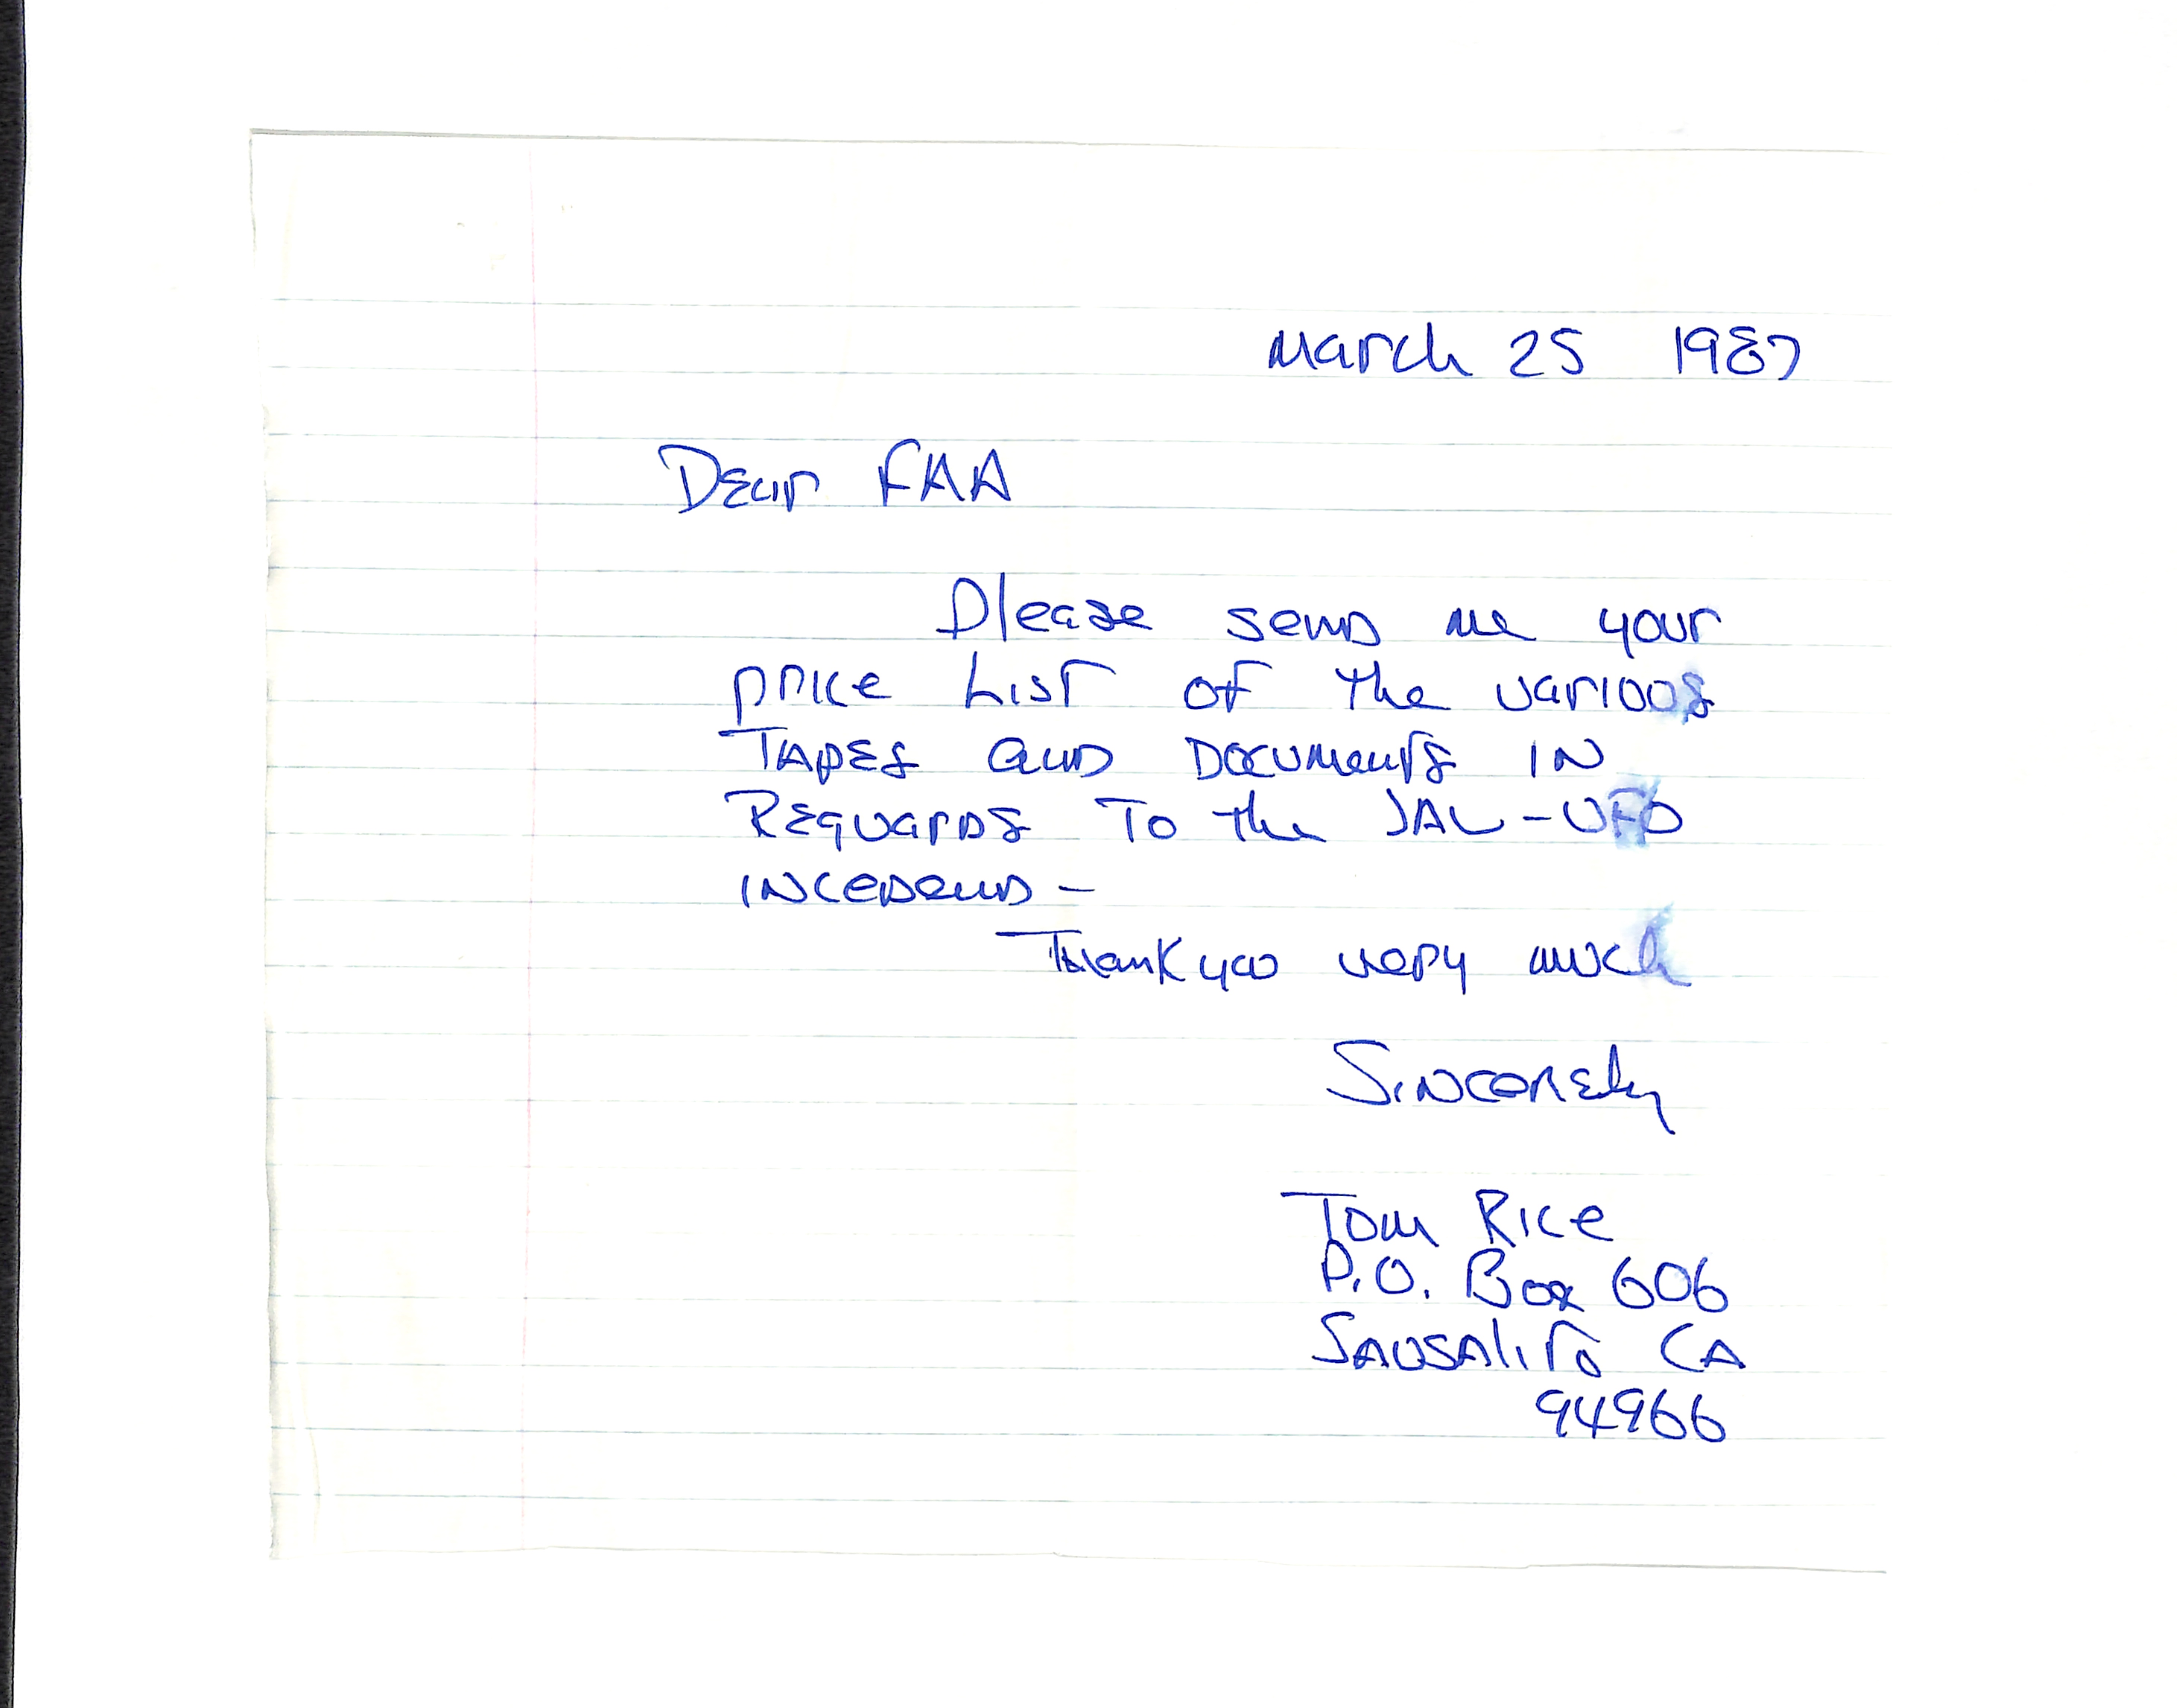 March 25 1987
Dear FAA
Please send me your
price List of the various
Tapes and Documents IN
Reguards To the JAL-UFO
INCEDEND -
Thank you very much
Sincerely
Tom Rice
P.O. Box 606
Sausalito CA
94966